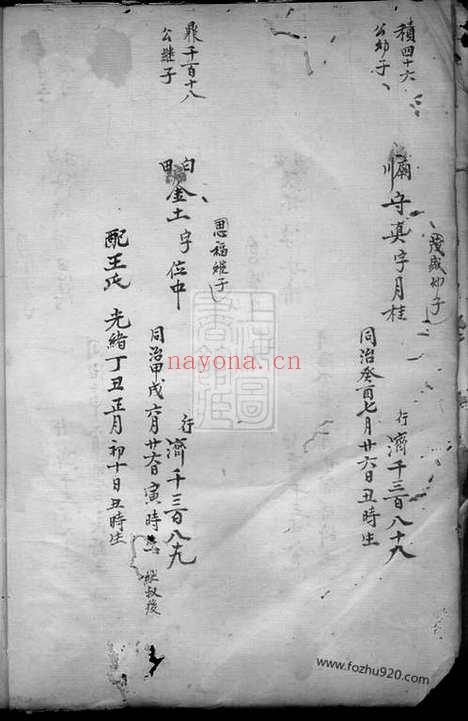 積四十六
公幼子
守真字月桂
茂盛幼子
行濟千三百八十九
同治癸酉七月廿六日丑時生
鼎千百十八
公繼子
金土字位中
思福繼子
行濟千三百八十九
同治甲戌六月廿六日寅時生
繼叔後
配王氏 光緒丁丑正月初十日丑時生
nayona.cn
www.fozhu920.com